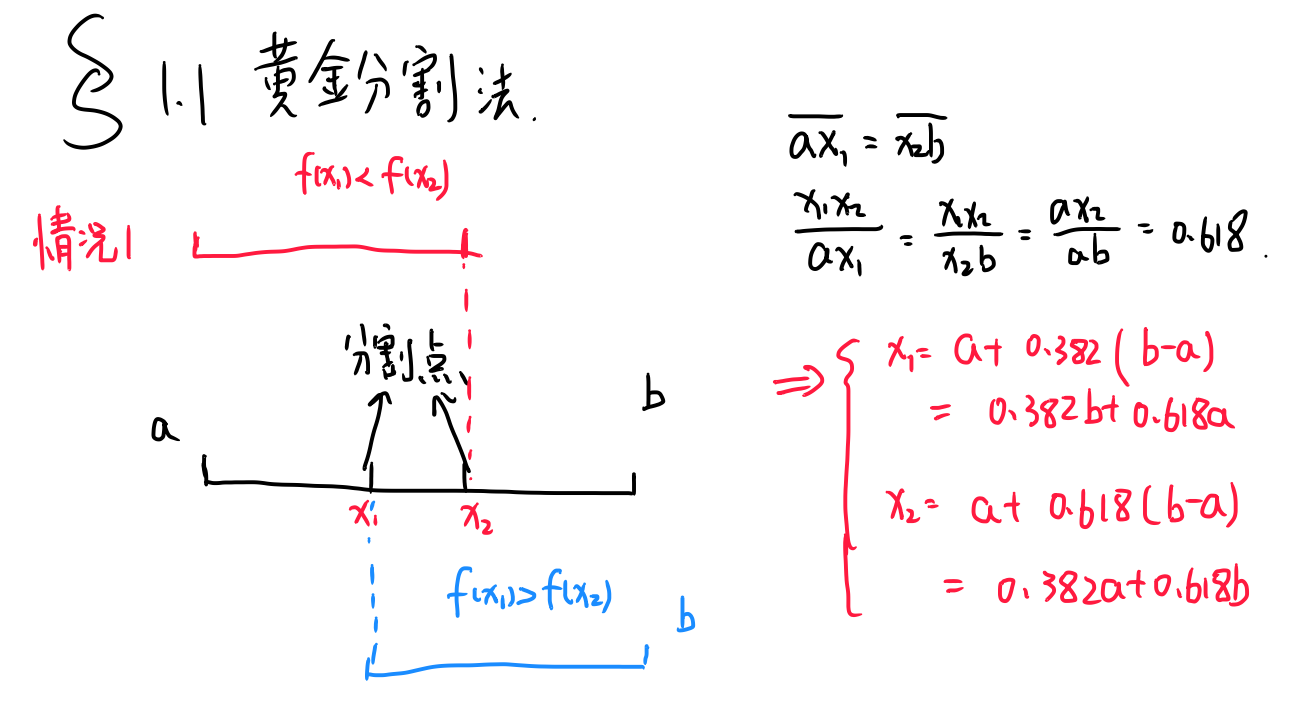 § 1.1 黄金分割法.
f(x₁)<f(x₂)
情况1
分割点
a
b
x₁ x₂
f(x₁)>f(x₂)
b
\overline{ax₁} = \overline{x₂b}
\frac{x₁x₂}{ax₁} = \frac{x₁x₂}{x₂b} = \frac{ax₂}{ab} = 0.618.
⇒ { x₁= a+ 0.382(b-a)
= 0.382b+0.618a
x₂= a+ 0.618(b-a)
= 0.382a+0.618b